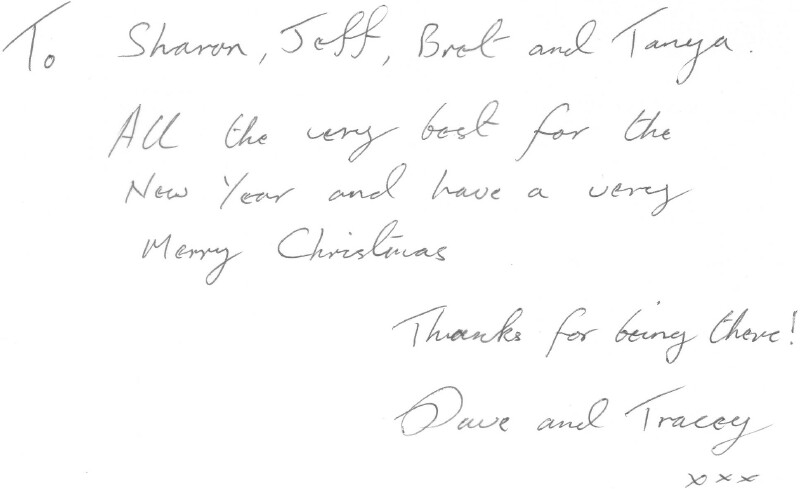 To Sharon, Jeff, Bret and Tanya.
All the very best for the
New Year and have a very
Merry Christmas
Thanks for being there!
Dave and Tracey
xxx